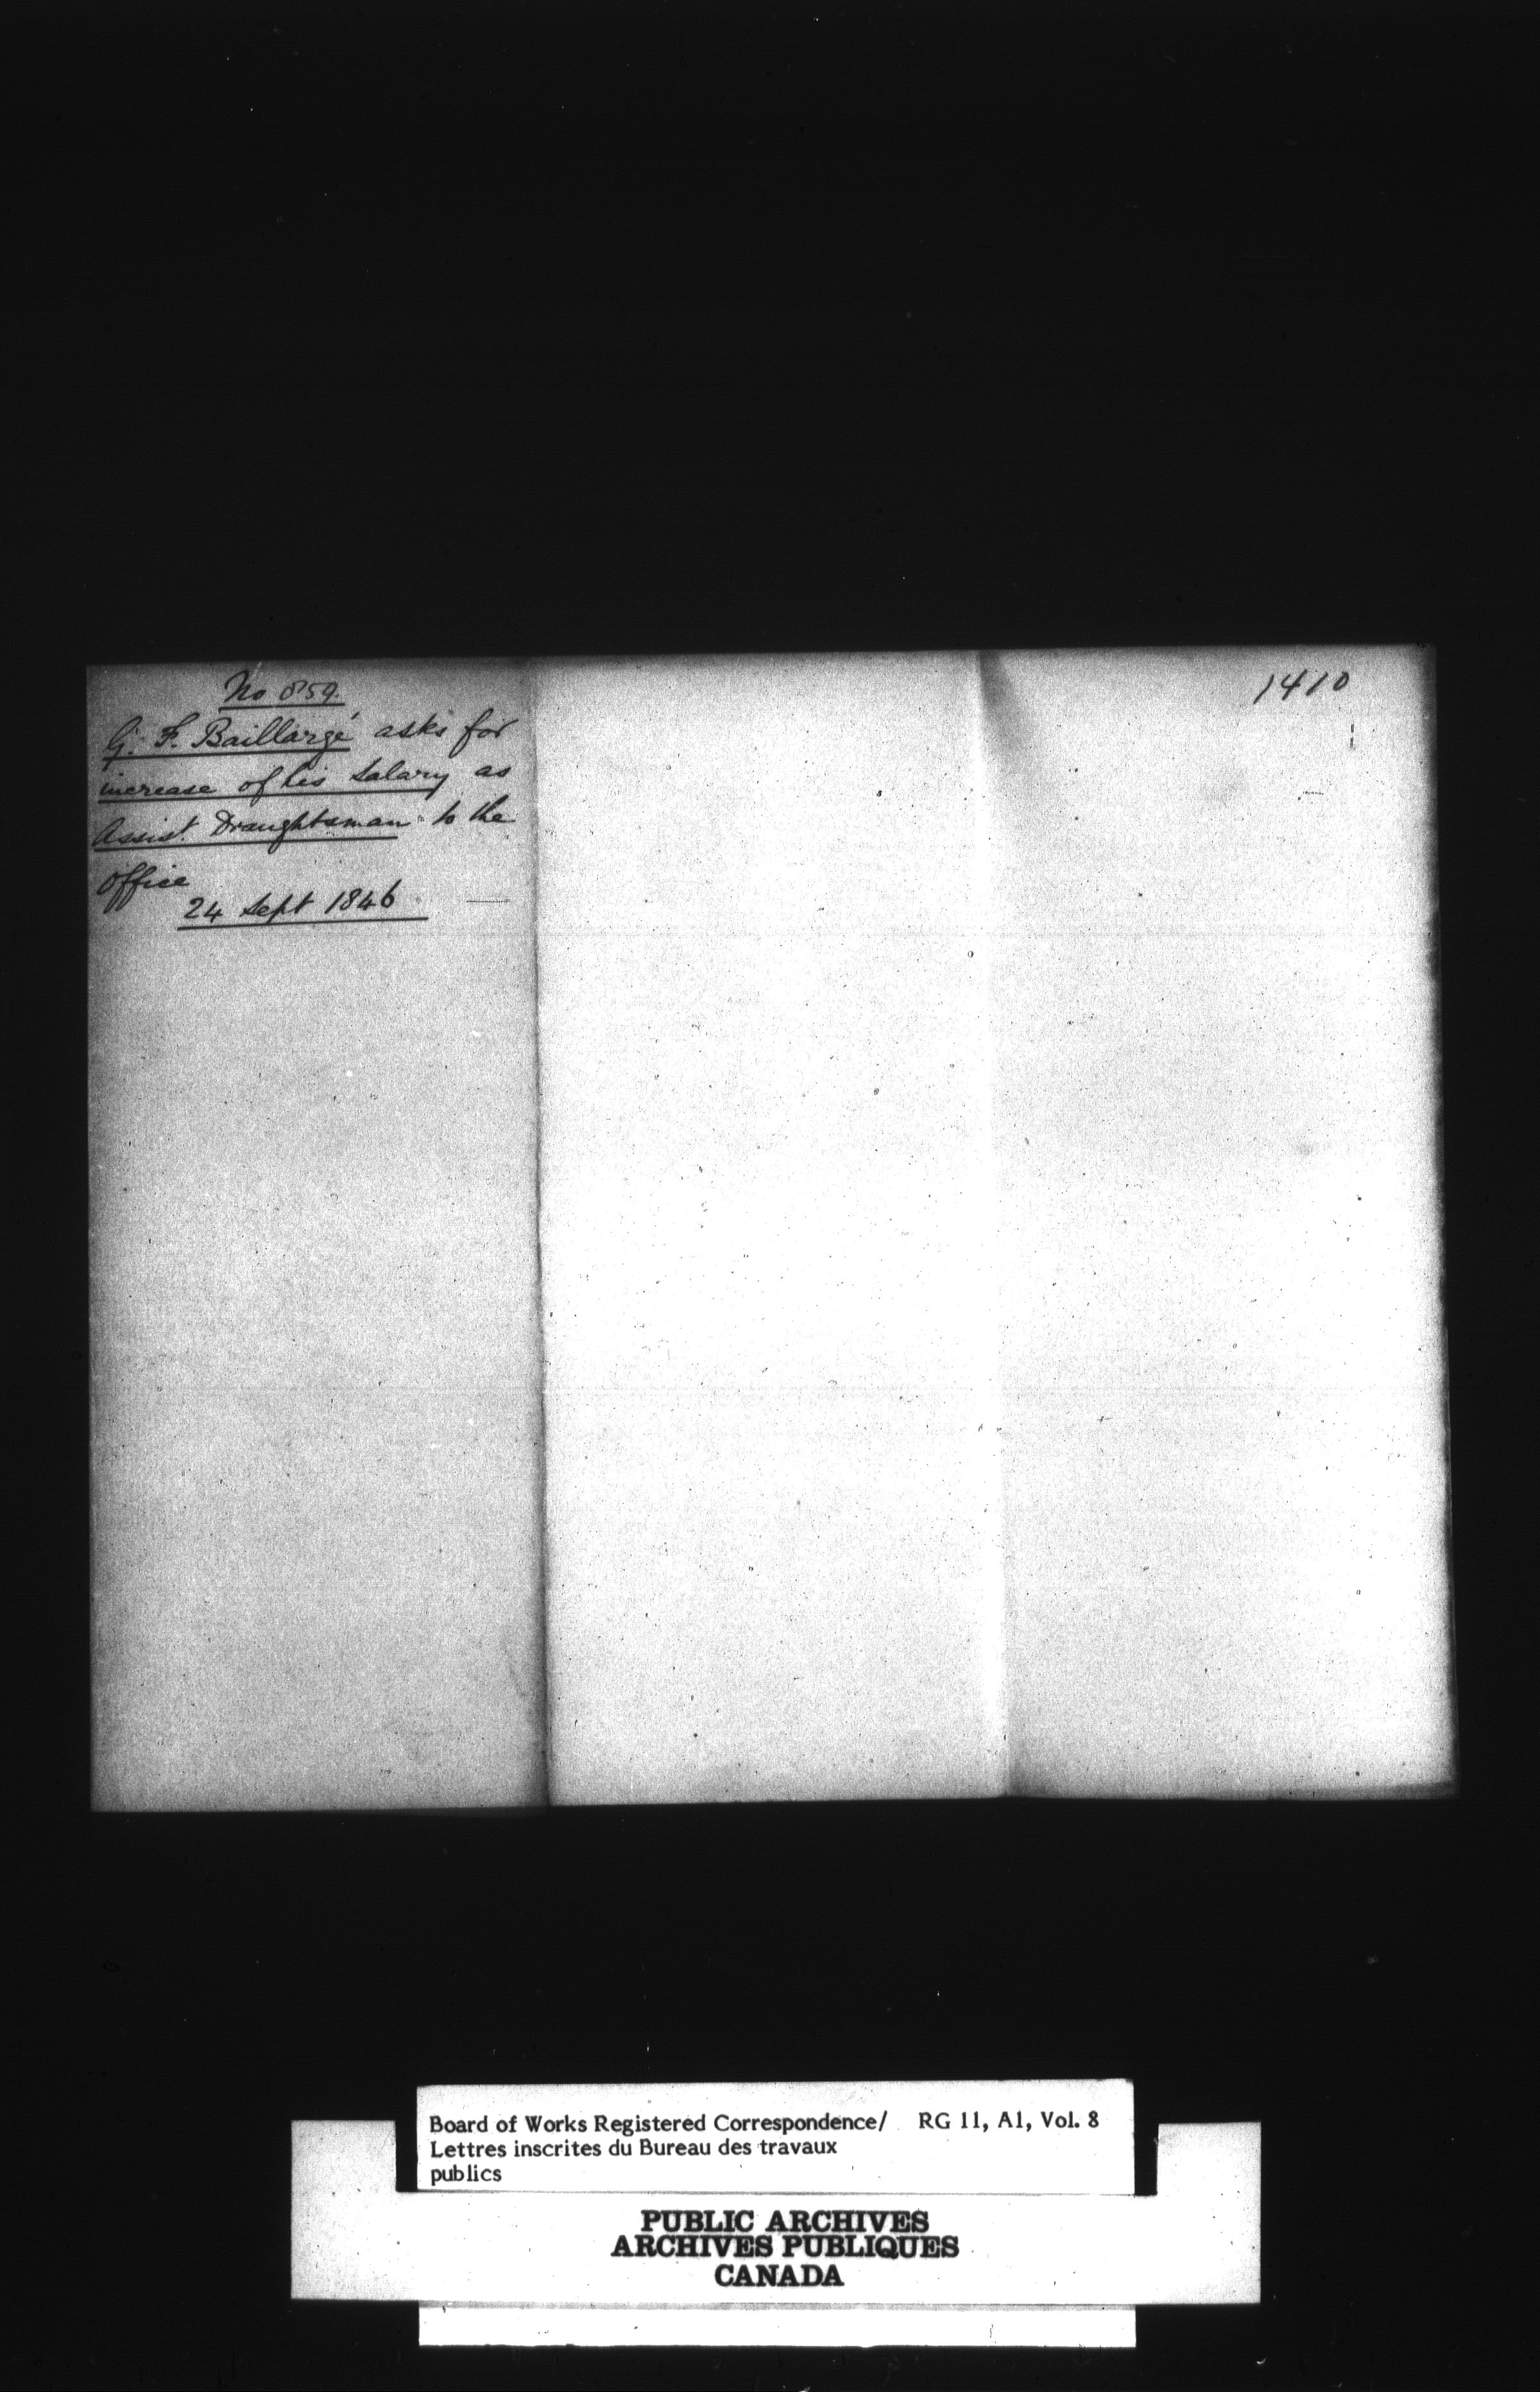 No 859.
G. F. Baillargé asks for
increase of his Salary as
Assist. Draughtsman to the
office
24 Sept 1846
1410
Board of Works Registered Correspondence/ RG 11, A1, Vol. 8
Lettres inscrites du Bureau des travaux
publics
PUBLIC ARCHIVES
ARCHIVES PUBLIQUES
CANADA